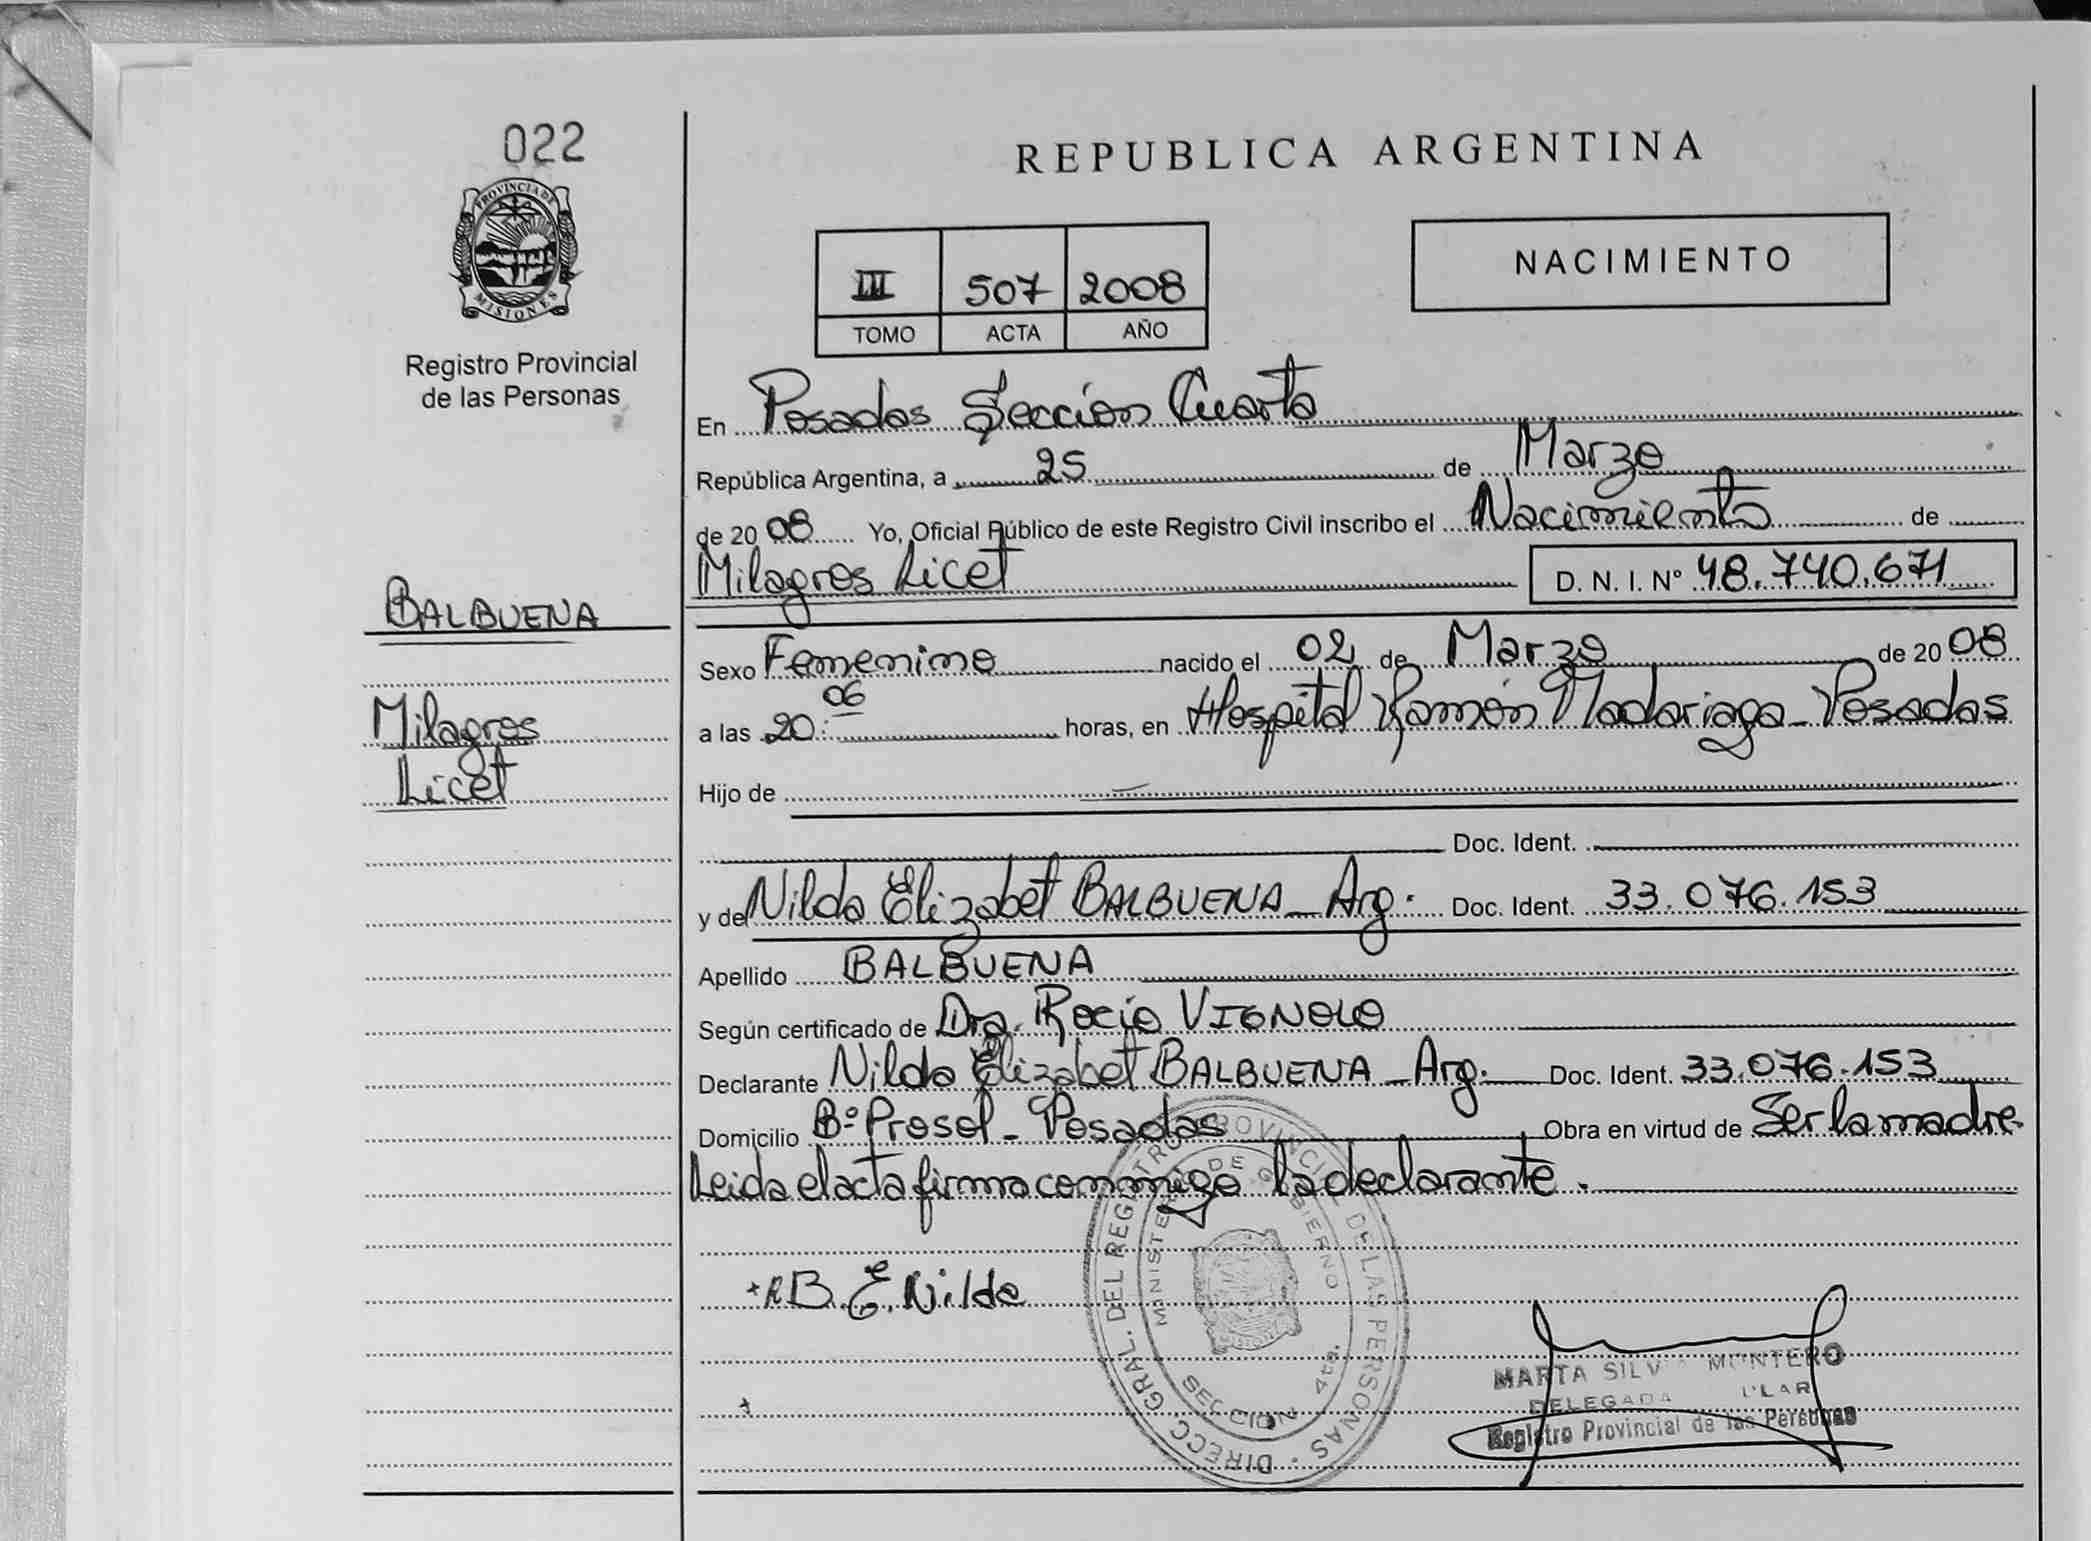 022
PROVINCIA DE
MISIONES
Registro Provincial
de las Personas
BALBUENA
Milagros
Licet
REPUBLICA ARGENTINA
III 507 2008
TOMO ACTA AÑO
NACIMIENTO
En Posadas Sección Cuarta
República Argentina, a 25 de Marzo
de 2008 Yo, Oficial Público de este Registro Civil inscribo el Nacimiento de
Milagros Licet D. N. I. Nº 48.740.671
Sexo Femenino nacido el 02 de Marzo de 2008
a las 20:06 horas, en Hospital Ramón Madariaga - Posadas
Hijo de
Doc. Ident.
y de Nilda Elizabet BALBUENA - Arg. Doc. Ident. 33.076.153
Apellido BALBUENA
Según certificado de Dra. Rocío VIGNOLO
Declarante Nilda Elizabet BALBUENA - Arg. Doc. Ident. 33.076.153
Domicilio Bº Prosol - Posadas Obra en virtud de Ser la madre.
Leida el acta firma conmigo la declarante.
B. E. Nilda
DIRECC. GRAL. DEL REGISTRO PROVINCIAL DE LAS PERSONAS
MINISTERIO DE GOBIERNO
SECCION 4ta.
MARTA MONTERO
DELEGADA
Registro Provincial de las Personas